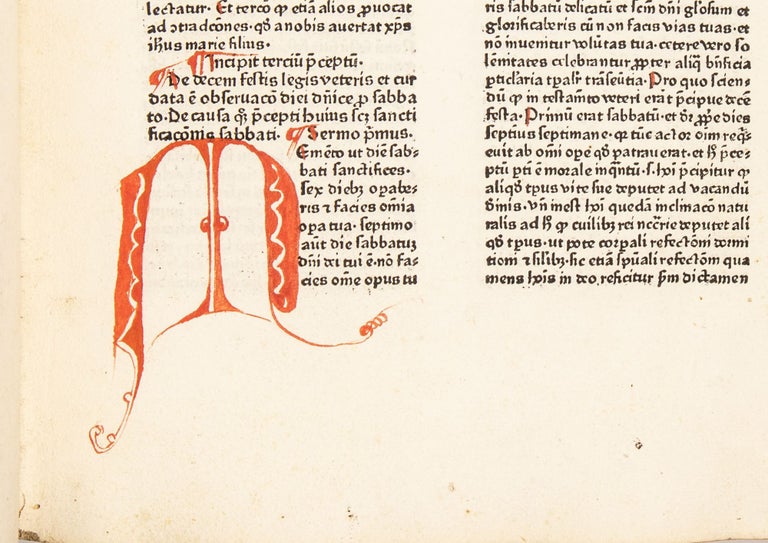 lectatur. Et tercō ꝙ etiā alios ꝓuocat
ad ↄtradcōnes. qḋ a nobis auertat xp̄s
ih̄us marie filius.
Incipit terciū p̄ceptū.
De decem festis legis veteris et cur
data ē obseruacō diei dn̄ice ꝓ sabba
to. De causa qr̄ p̄cepti huius scꝫ sancti
ficacōnis sabbati. Sermo p̄mus.
MEmēto ut diē sab-
bati sanctifices.
Sex diebꝫ oꝑabe-
ris ⁊ facies om̄ia
oꝑa tua. septimo
aūt die sabbatuꝫ
dn̄i dei tui ē. nō fa-
cies om̄e opus tu
ris sabbatū delicatū et scm̄ dn̄i glōsum et
glorificaberis eū non facis vias tuas. et
nō inuenitur volūtas tua. cetere vero so
lēnitates celebrantur ꝓpter aliqḋ bn̄ficia
ꝑticlaria tꝑalr̄ trāseūtia. Pro quo scien-
dū ꝙ in testamēto veteri erāt p̄cipue decē
festa. Primū erat sabbatū. et dr̄ ꝓpe dies
septiūs septimane. ꝙ tūc actor oīm req̄-
euit ab omī ope qḋ patrauerat. et h̄ p̄ce-
ptū ꝑti ē morale inqntū. s. hōi p̄cipitur ꝙ
aliqḋ tp̄us vite sue deputet ad vacandū
diuinis. vn̄ inest hōi quedā inclinacō natu
ralis ad h̄ ꝙ cuilibꝫ rei nc̄crīe deputet ali
qḋ tp̄us. ut pote corꝑali refectōni dormi
tioni ⁊ silibꝫ. sic etiā sp̄uali refectōm qua
mens hōis in deo reficitur ẜm dictamen